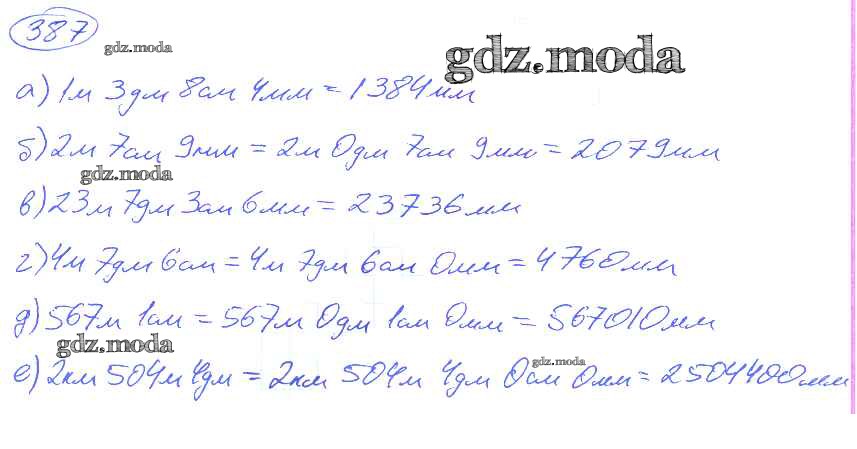 387
gdz.moda
gdz.moda
а) 1м 3дм 8см 4мм = 1384мм
б) 2м 7см 9мм = 2м 0дм 7см 9мм = 2079мм
gdz.moda
в) 23м 7дм 3см 6мм = 23736мм
г) 4м 7дм 6см = 4м 7дм 6см 0мм = 4760мм
д) 567м 1см = 567м 0дм 1см 0мм = 567010мм
gdz.moda
gdz.moda
е) 2км 504м 4дм = 2км 504м 4дм 0см 0мм = 2504400мм